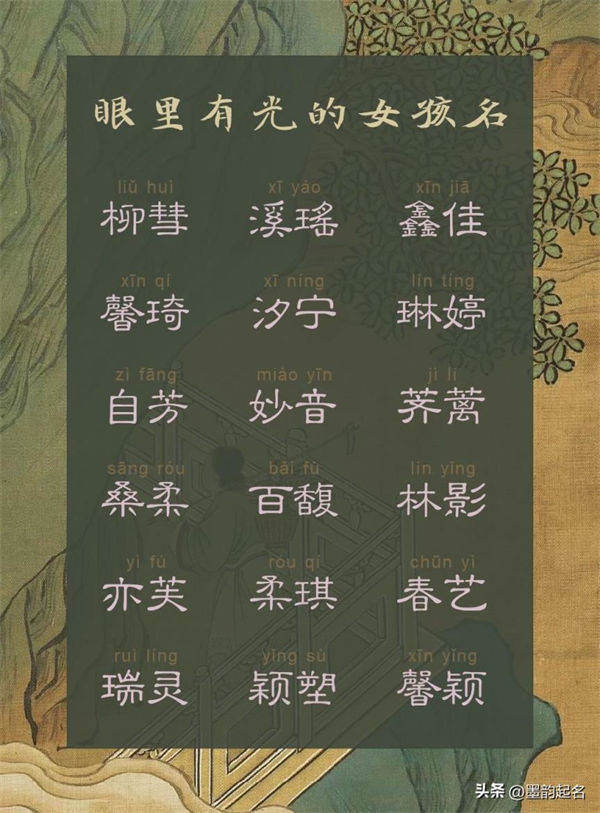 眼里有光的女孩名
liǔ huì xī yáo xīn jiā
柳彗 溪瑤 鑫佳
xīn qí xī níng lín tíng
馨琦 汐宁 琳婷
zì fāng miào yīn jì lí
自芳 妙音 荠蓠
sāng róu bǎi fù lín yǐng
桑柔 百馥 林影
yì fú róu qí chūn yì
亦芙 柔琪 春艺
ruì líng yǐng sù xīn yǐng
瑞灵 颖塑 馨颖
头条 @墨韵起名